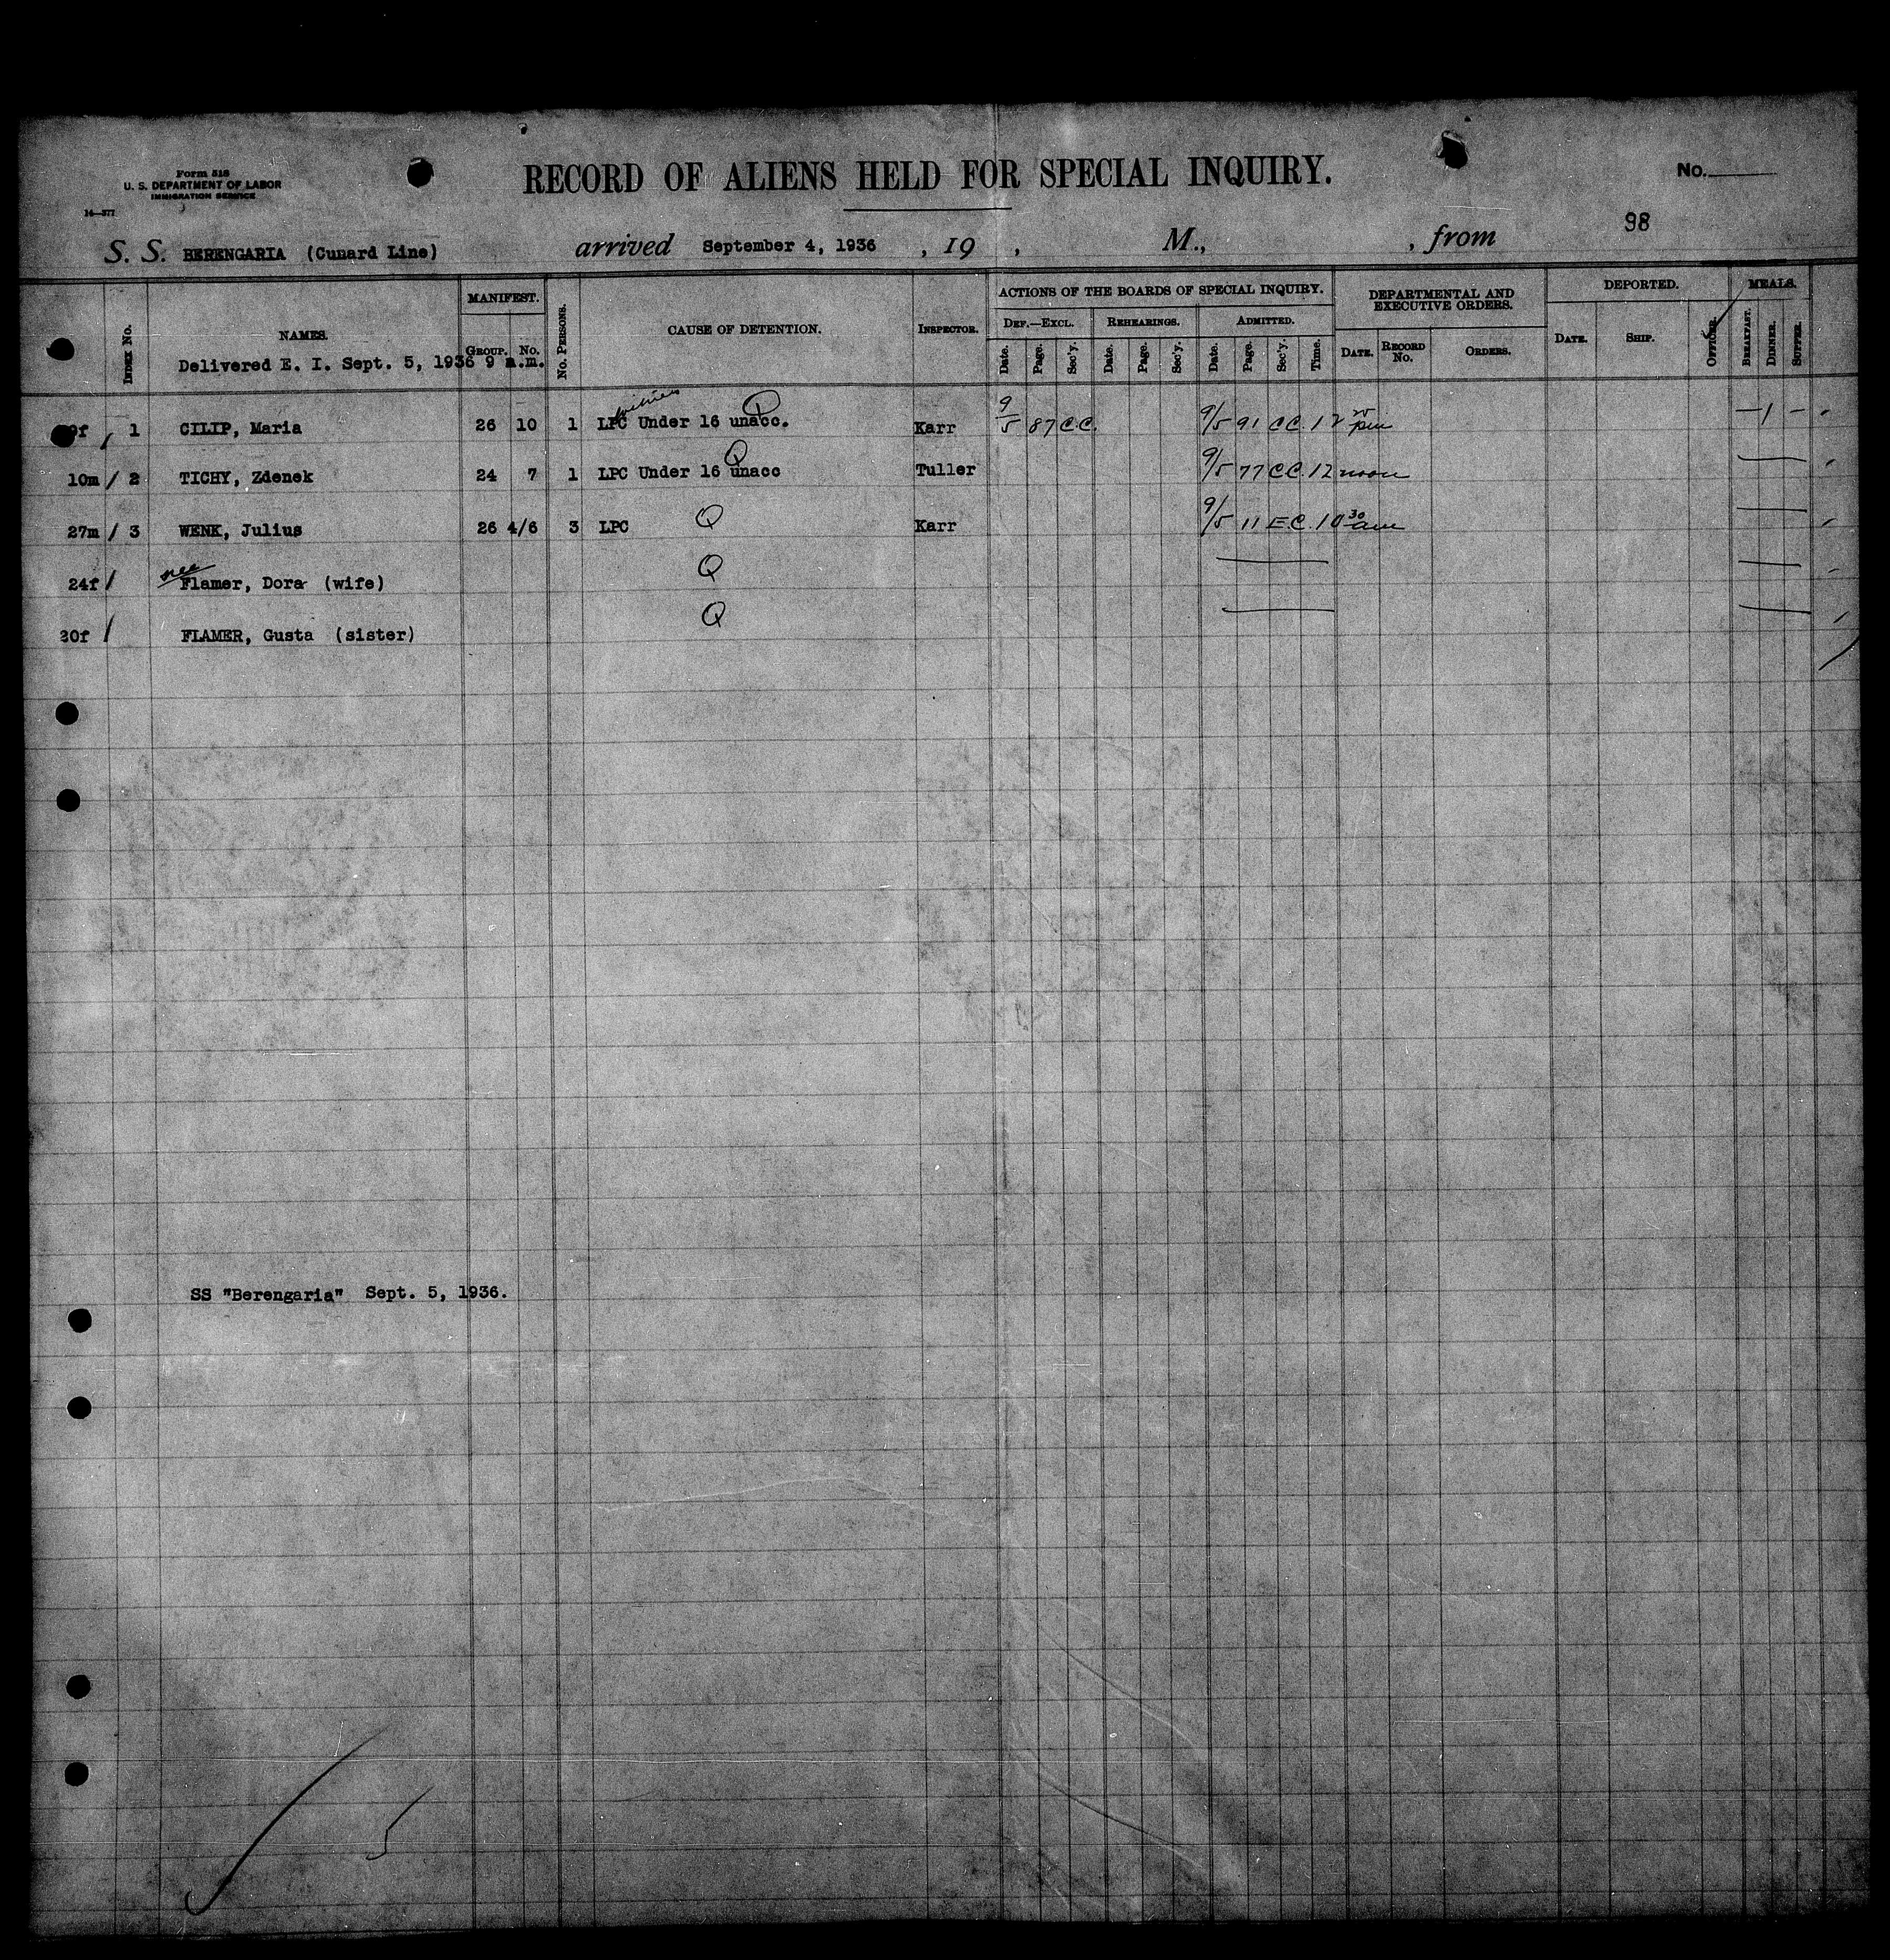 Form 518
U. S. DEPARTMENT OF LABOR
IMMIGRATION SERVICE
14—377
RECORD OF ALIENS HELD FOR SPECIAL INQUIRY.
No.
98
S. S. BERENGARIA (Cunard Line) arrived September 4, 1936 , 19 , M., , from
Index No. NAMES. MANIFEST. Group. No. No. Persons. CAUSE OF DETENTION. Inspector. ACTIONS OF THE BOARDS OF SPECIAL INQUIRY. DEPARTMENTAL AND EXECUTIVE ORDERS. DEPORTED. MEALS.
Def.—Excl. Rehearings. Admitted.
Date. Page. Sec'y. Date. Page. Sec'y. Date. Page. Sec'y. Time. Date. Record No. Orders. Date. Ship. Officer. Breakfast. Dinner. Supper.
Delivered E. I. Sept. 5, 1936 9 a.m.
9f / 1 CILIP, Maria 26 10 1 LPC Under 16 unacc. Q Karr 9/5 87 C.C. 9/5 91 CC. 12 20 pm — 1 —
10m / 2 TICHY, Zdenek 24 7 1 LPC Under 16 unacc Q Tuller 9/5 77 CC. 12 noon
27m / 3 WENK, Julius 26 4/6 3 LPC Q Karr 9/5 11 E.C. 10 30 am
24f / nee Flamer, Dora (wife) Q
20f / FLAMER, Gusta (sister) Q
SS "Berengaria" Sept. 5, 1936.
5